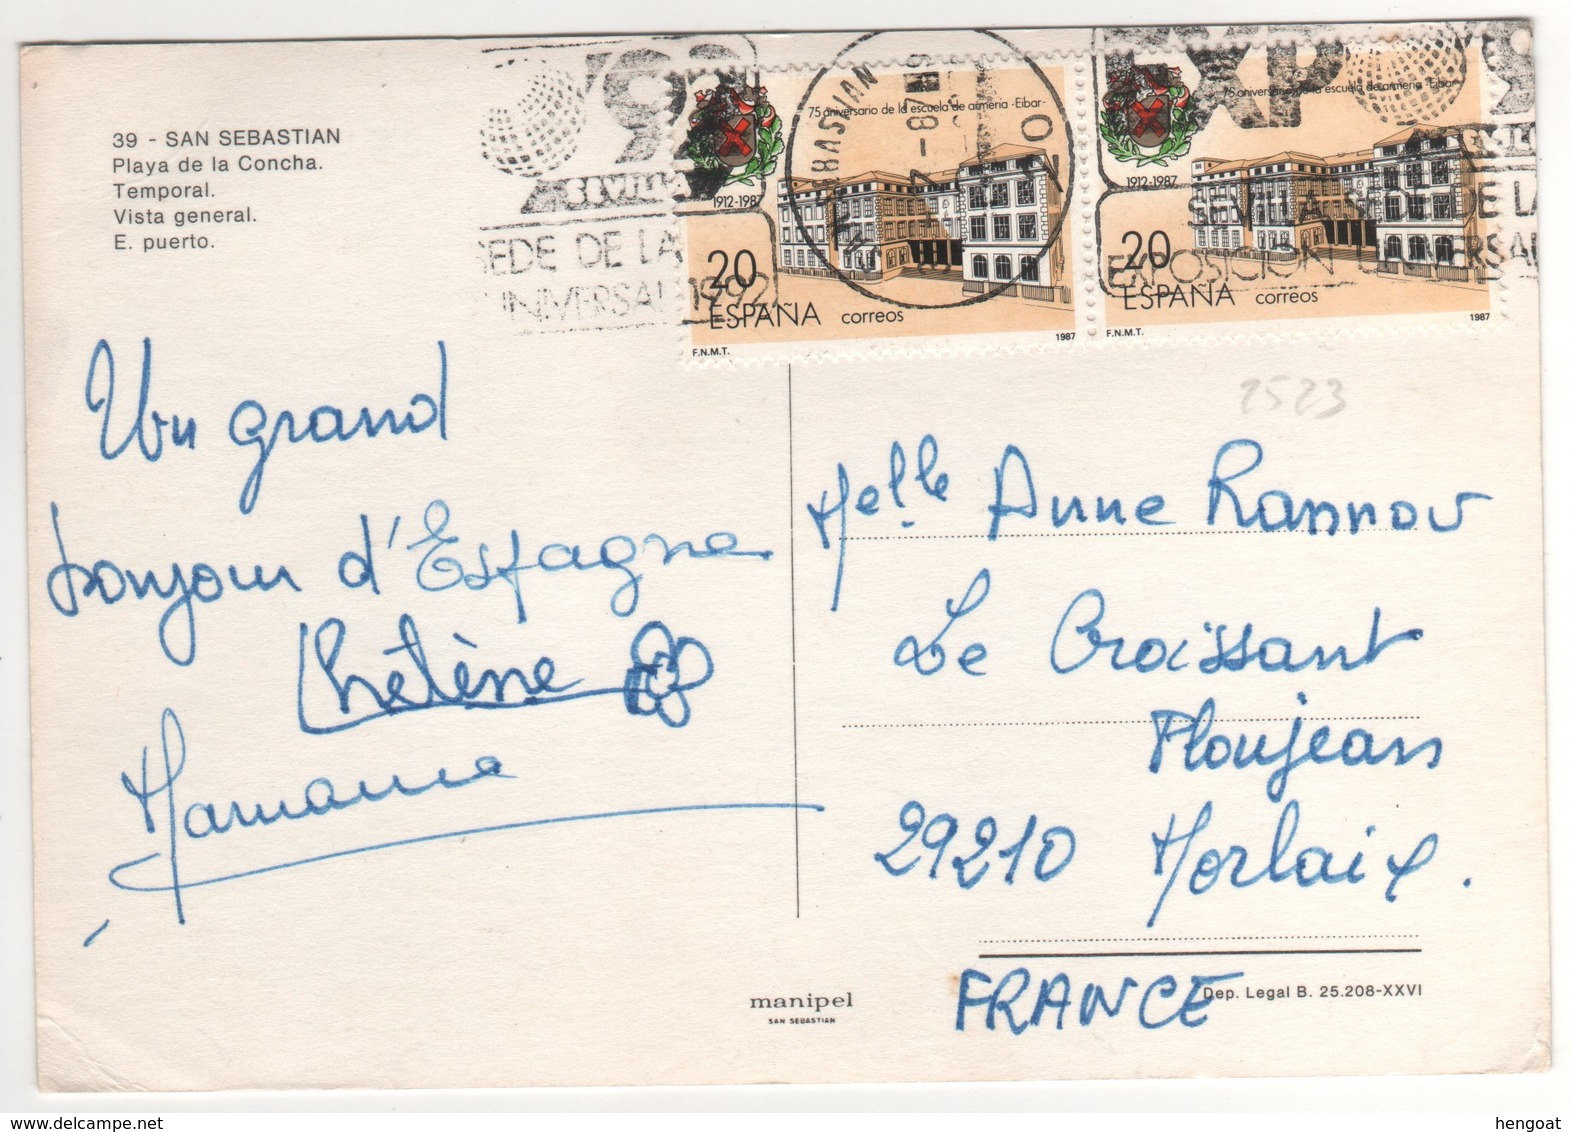 39 - SAN SEBASTIAN
Playa de la Concha.
Temporal.
Vista general.
E. puerto.
'92
SEVILLA
SEDE DE LA
UNIVERSAL 1992
75 aniversario de la escuela de armeria -Eibar-
1912-1987
20
ESPAÑA correos
F.N.M.T. 1987
SAN SEBASTIAN
75 aniversario de la escuela de armeria -Eibar-
1912-1987
20
ESPAÑA correos
F.N.M.T. 1987
EXPO
SEVILLA SEDE DE LA
EXPOSICION UNIVERSAL
2523
Un grand
bonjour d'Espagne
Hélène
Mamama
Melle Anne Rannou
Le Croissant
Ploujean
29210 Morlaix.
FRANCE
manipel
SAN SEBASTIAN
Dep. Legal B. 25.208-XXVI
www.delcampe.net
hengoat